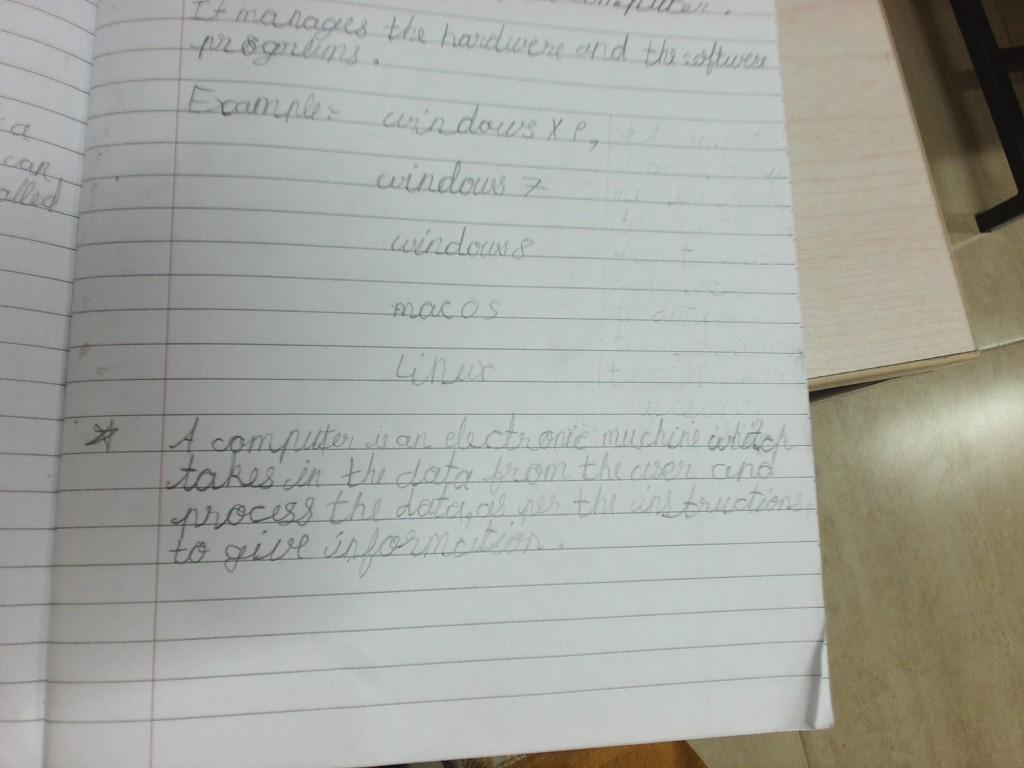 computer.
It manages the hardwere and the softwere
progrums.
Example:- windows XP,
windows 7
windows 8
macos
Linux
a
can
alled
A computer is an electronic muchine which
takes in the data from the user and
process the data, as per the instructions
to give information.